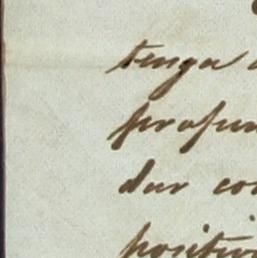 tenga
profun
dar co
positiv